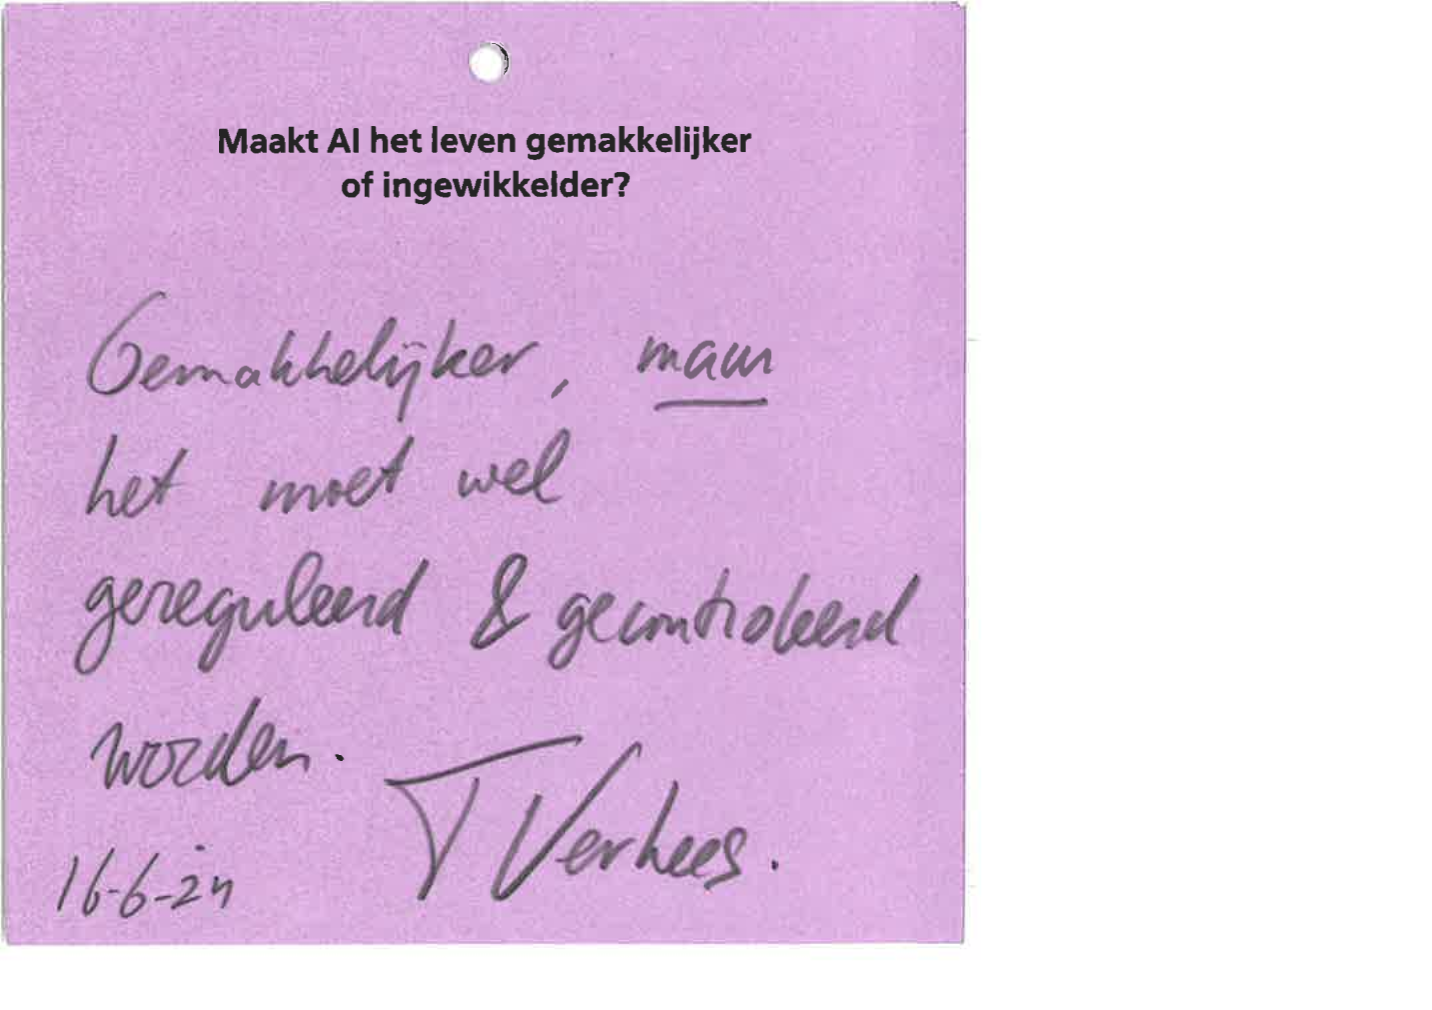 Maakt AI het leven gemakkelijker
of ingewikkelder?
Gemakkelijker, maar
het moet wel
gereguleerd & gecontroleerd
worden.
T Verhees.
16-6-24